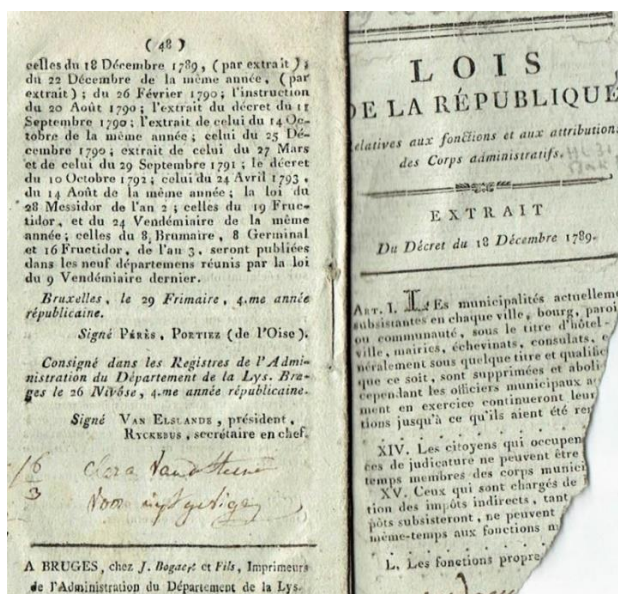 ( 48 )
celles du 18 Décembre 1789, (par extrait);
du 22 Décembre de la même année, (par
extrait); du 26 Février 1790; l'instruction
du 20 Août 1790; l'extrait du décret du 11
Septembre 1790; l'extrait de celui du 14 Oc-
tobre de la même année; celui du 25 Dé-
cembre 1790; extrait de celui du 27 Mars
et de celui du 29 Septembre 1791; le décret
du 10 Octobre 1792; celui du 24 Avril 1793,
du 14 Août de la même année; la loi du
28 Messidor de l'an 2; celles du 19 Fruc-
tidor, et du 24 Vendémiaire de la même
année; celles du 8 Brumaire, 8 Germinal
et 16 Fructidor, de l'an 3, seront publiées
dans les neuf départemens réunis par la loi
du 9 Vendémiaire dernier.
Bruxelles, le 29 Frimaire, 4.me année
républicaine.
Signé PÉRÈS, PORTIEZ (de l'Oise).
Consigné dans les Registres de l'Admi-
nistration du Département de la Lys. Bru-
ges le 26 Nivôse, 4.me année républicaine.
Signé VAN ELSLANDE, président,
RYCKEBUS, secrétaire en chef.
16
3
A BRUGES, chez J. Bogaert et Fils, Imprimeurs
de l'Administration du Département de la Lys.
LOIS
DE LA RÉPUBLIQUE
elatives aux fonctions et aux attributions
des Corps administratifs.
EXTRAIT
Du Décret du 18 Décembre 1789.
ART. I. LEs municipalités actuellem
subsistantes en chaque ville, bourg, paroi
ou communauté, sous le titre d'hôtel-
ville, mairies, échevinats, consulats,
néralement sous quelque titre et qualific
que ce soit, sont supprimées et aboli
cependant les officiers municipaux a
ment en exercice continueront leur
tions jusqu'à ce qu'ils aient été rep
XIV. Les citoyens qui occupen
ces de judicature ne peuvent être
temps membres des corps munici
XV. Ceux qui sont chargés de
tion des impôts indirects, tant
pôts subsisteront, ne peuvent
même-temps aux fonctions m
L. Les fonctions propre